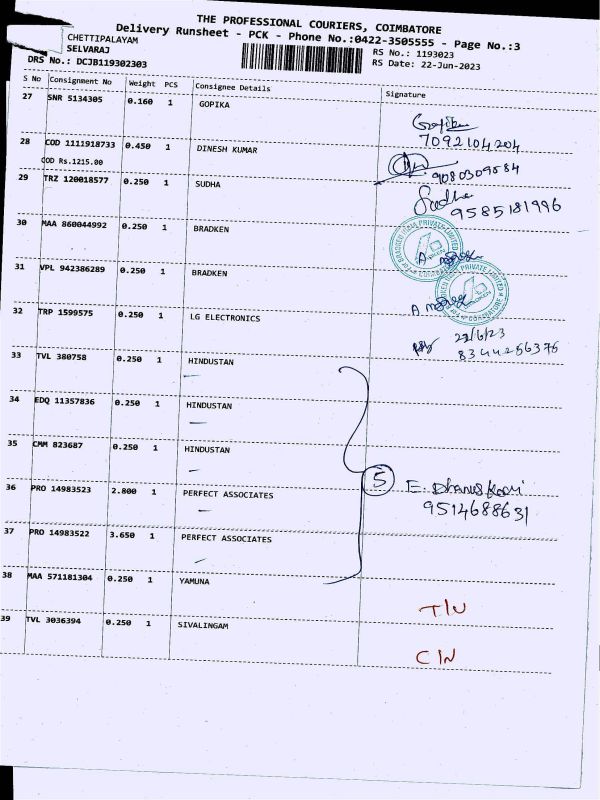 THE PROFESSIONAL COURIERS, COIMBATORE
Delivery Runsheet - PCK - Phone No.:0422-3505555 - Page No.:3
CHETTIPALAYAM
SELVARAJ
RS No.: 1193023
DRS No.: DCJB119302303
RS Date: 22-Jun-2023
S No Consignment No Weight PCS Consignee Details Signature
27 SNR 5134305 0.160 1 GOPIKA
Gopika
7092104204
28 COD 1111918733 0.450 1 DINESH KUMAR
COD Rs.1215.00
9080309584
29 TRZ 120018577 0.250 1 SUDHA
Sudha
9585181996
30 MAA 860044992 0.250 1 BRADKEN
31 VPL 942386289 0.250 1 BRADKEN
32 TRP 1599575 0.250 1 LG ELECTRONICS
22/6/23
8344256375
33 TVL 380758 0.250 1 HINDUSTAN
34 EDQ 11357836 0.250 1 HINDUSTAN
35 CMM 823687 0.250 1 HINDUSTAN
5
36 PRO 14983523 2.800 1 PERFECT ASSOCIATES
9514688631
37 PRO 14983522 3.650 1 PERFECT ASSOCIATES
38 MAA 571181304 0.250 1 YAMUNA
T/U
39 TVL 3036394 0.250 1 SIVALINGAM
C/N